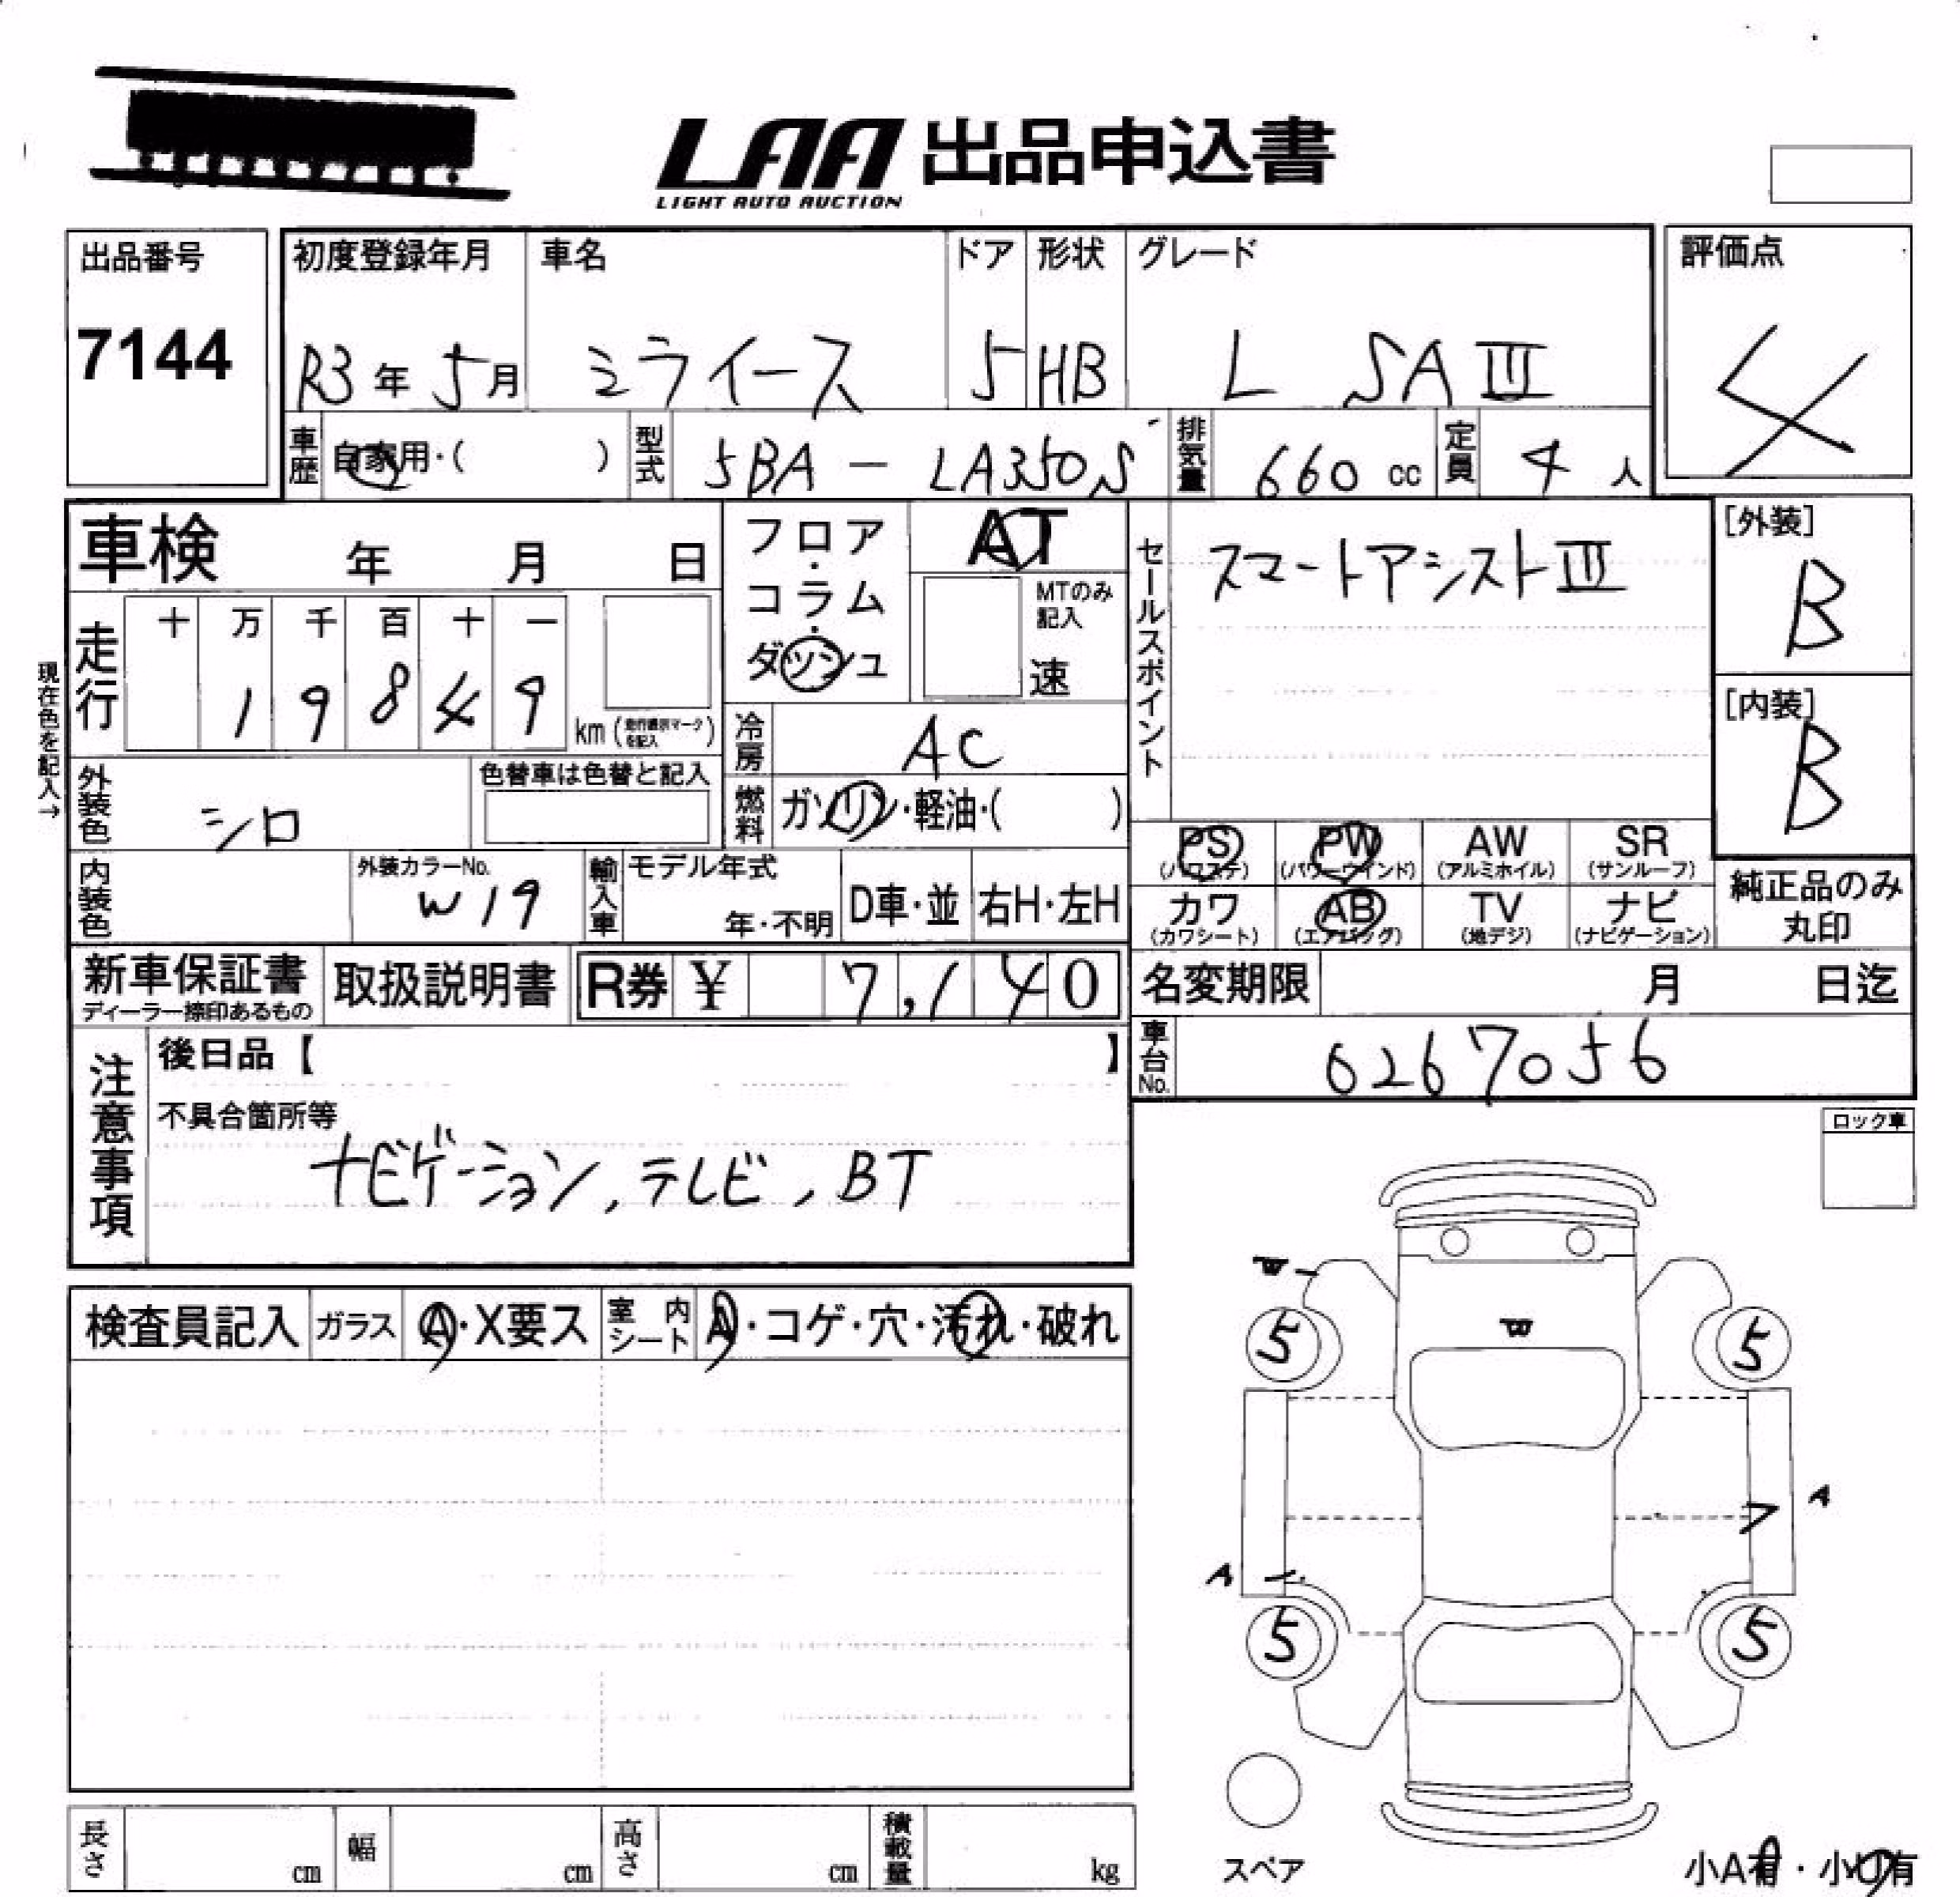 LAA 出品申込書
LIGHT AUTO AUCTION
出品番号 初度登録年月 車名 ドア 形状 グレード 評価点
7144 R3年 5月 ミライース 5 HB L SAⅢ 4
車歴 自家用・( ) 型式 5BA - LA350S 排気量 660 cc 定員 4 人
車検 年 月 日
フロア・コラム・ダッシュ
AT
MTのみ記入
速
セールスポイント
スマートアシストⅢ
[外装]
B
[内装]
B
現在色を記入→
走行 十 万 千 百 十 一
1 9 8 4 9 km (走行表示マークを記入)
冷房 AC
外装色 シロ 色替車は色替と記入
燃料 ガソリン・軽油・( )
内装色 外装カラーNo. W19
輸入車 モデル年式 年・不明 D車・並 右H・左H
PS (パワステ) PW (パワーウインド) AW (アルミホイル) SR (サンルーフ)
カワ (カワシート) AB (エアバッグ) TV (地デジ) ナビ (ナビゲーション)
純正品のみ丸印
新車保証書 ディーラー捺印あるもの 取扱説明書 R券 ¥ 7,140
名変期限 月 日迄
車台No. 0267056
注意事項
後日品【 】
不具合箇所等
ナビゲーション, テレビ, BT
ロック車
検査員記入 ガラス A・X要ス 室内シート A・コゲ・穴・汚れ・破れ
W
W
5 5
A
A
5 5
スペア
小A有・小U有
長さ cm 幅 cm 高さ cm 積載量 kg